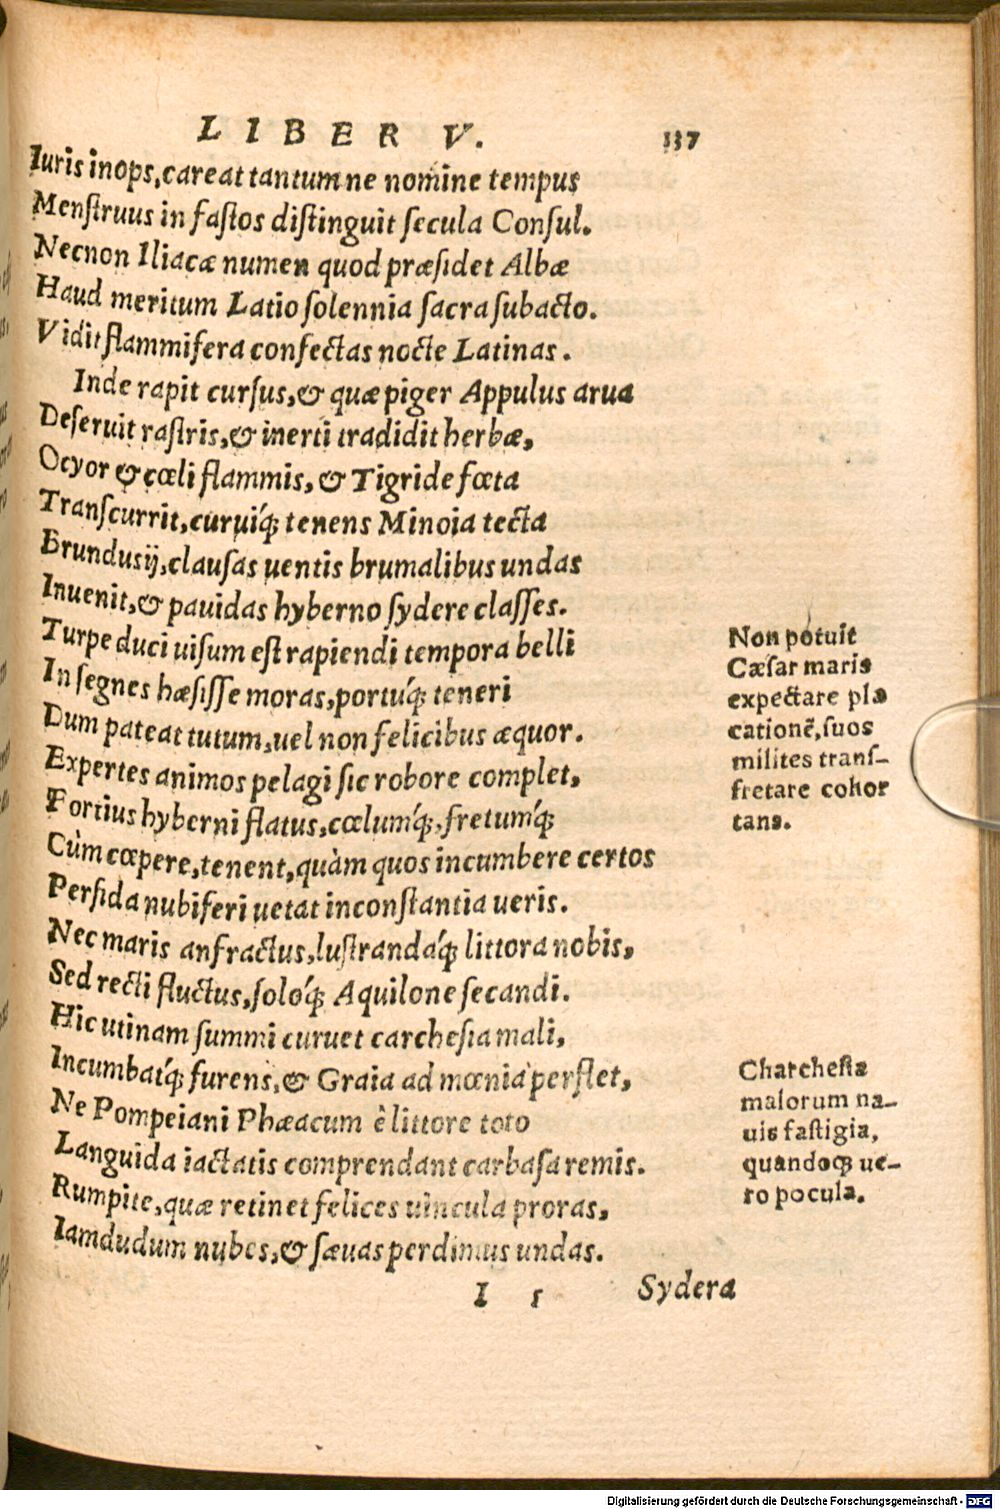 LIBER V. 137
Iuris inops, careat tantum ne nomine tempus
Menſtruus in faſtos diſtinguit ſecula Conſul.
Necnon Iliacæ numen quod præſidet Albæ
Haud meritum Latio ſolennia ſacra ſubacto.
Vidit flammifera confectas nocte Latinas.
Inde rapit curſus, & quæ piger Appulus arua
Deſeruit raſtris, & inerti tradidit herbæ,
Ocyor & cœli flammis, & Tigride fœta
Tranſcurrit, curuíq; tenens Minoia tecta
Brunduſij, clauſas uentis brumalibus undas
Inuenit, & pauidas hyberno ſydere claſſes.
Turpe duci uiſum eſt rapiendi tempora belli
In ſegnes hæſiſſe moras, portúq; teneri
Dum pateat tutum, uel non felicibus æquor.
Expertes animos pelagi ſic robore complet,
Fortius hyberni flatus, cœlumq́;, fretumq́;
Cùm cœpere, tenent, quàm quos incumbere certos
Perſida nubiferi uetat inconſtantia ueris.
Nec maris anfractus, luſtrandáq; littora nobis,
Sed recti fluctus, ſolóq; Aquilone ſecandi.
Hic utinam ſummi curuet carcheſia mali,
Incumbatq́; furens, & Graia ad mœnia perflet,
Ne Pompeiani Phæacum è littore toto
Languida iactatis comprendant carbaſa remis.
Rumpite, quæ retinet felices uincula proras,
Iamdudum nubes, & ſæuas perdimus undas.
I 5 Sydera
Non potuit
Cæſar maris
expectare pla
cationẽ, ſuos
milites tranſ-
fretare cohor
tans.
Charcheſia
malorum na-
uis faſtigia,
quandoq; ue-
ro pocula.
Digitalisierung gefördert durch die Deutsche Forschungsgemeinschaft - DFG